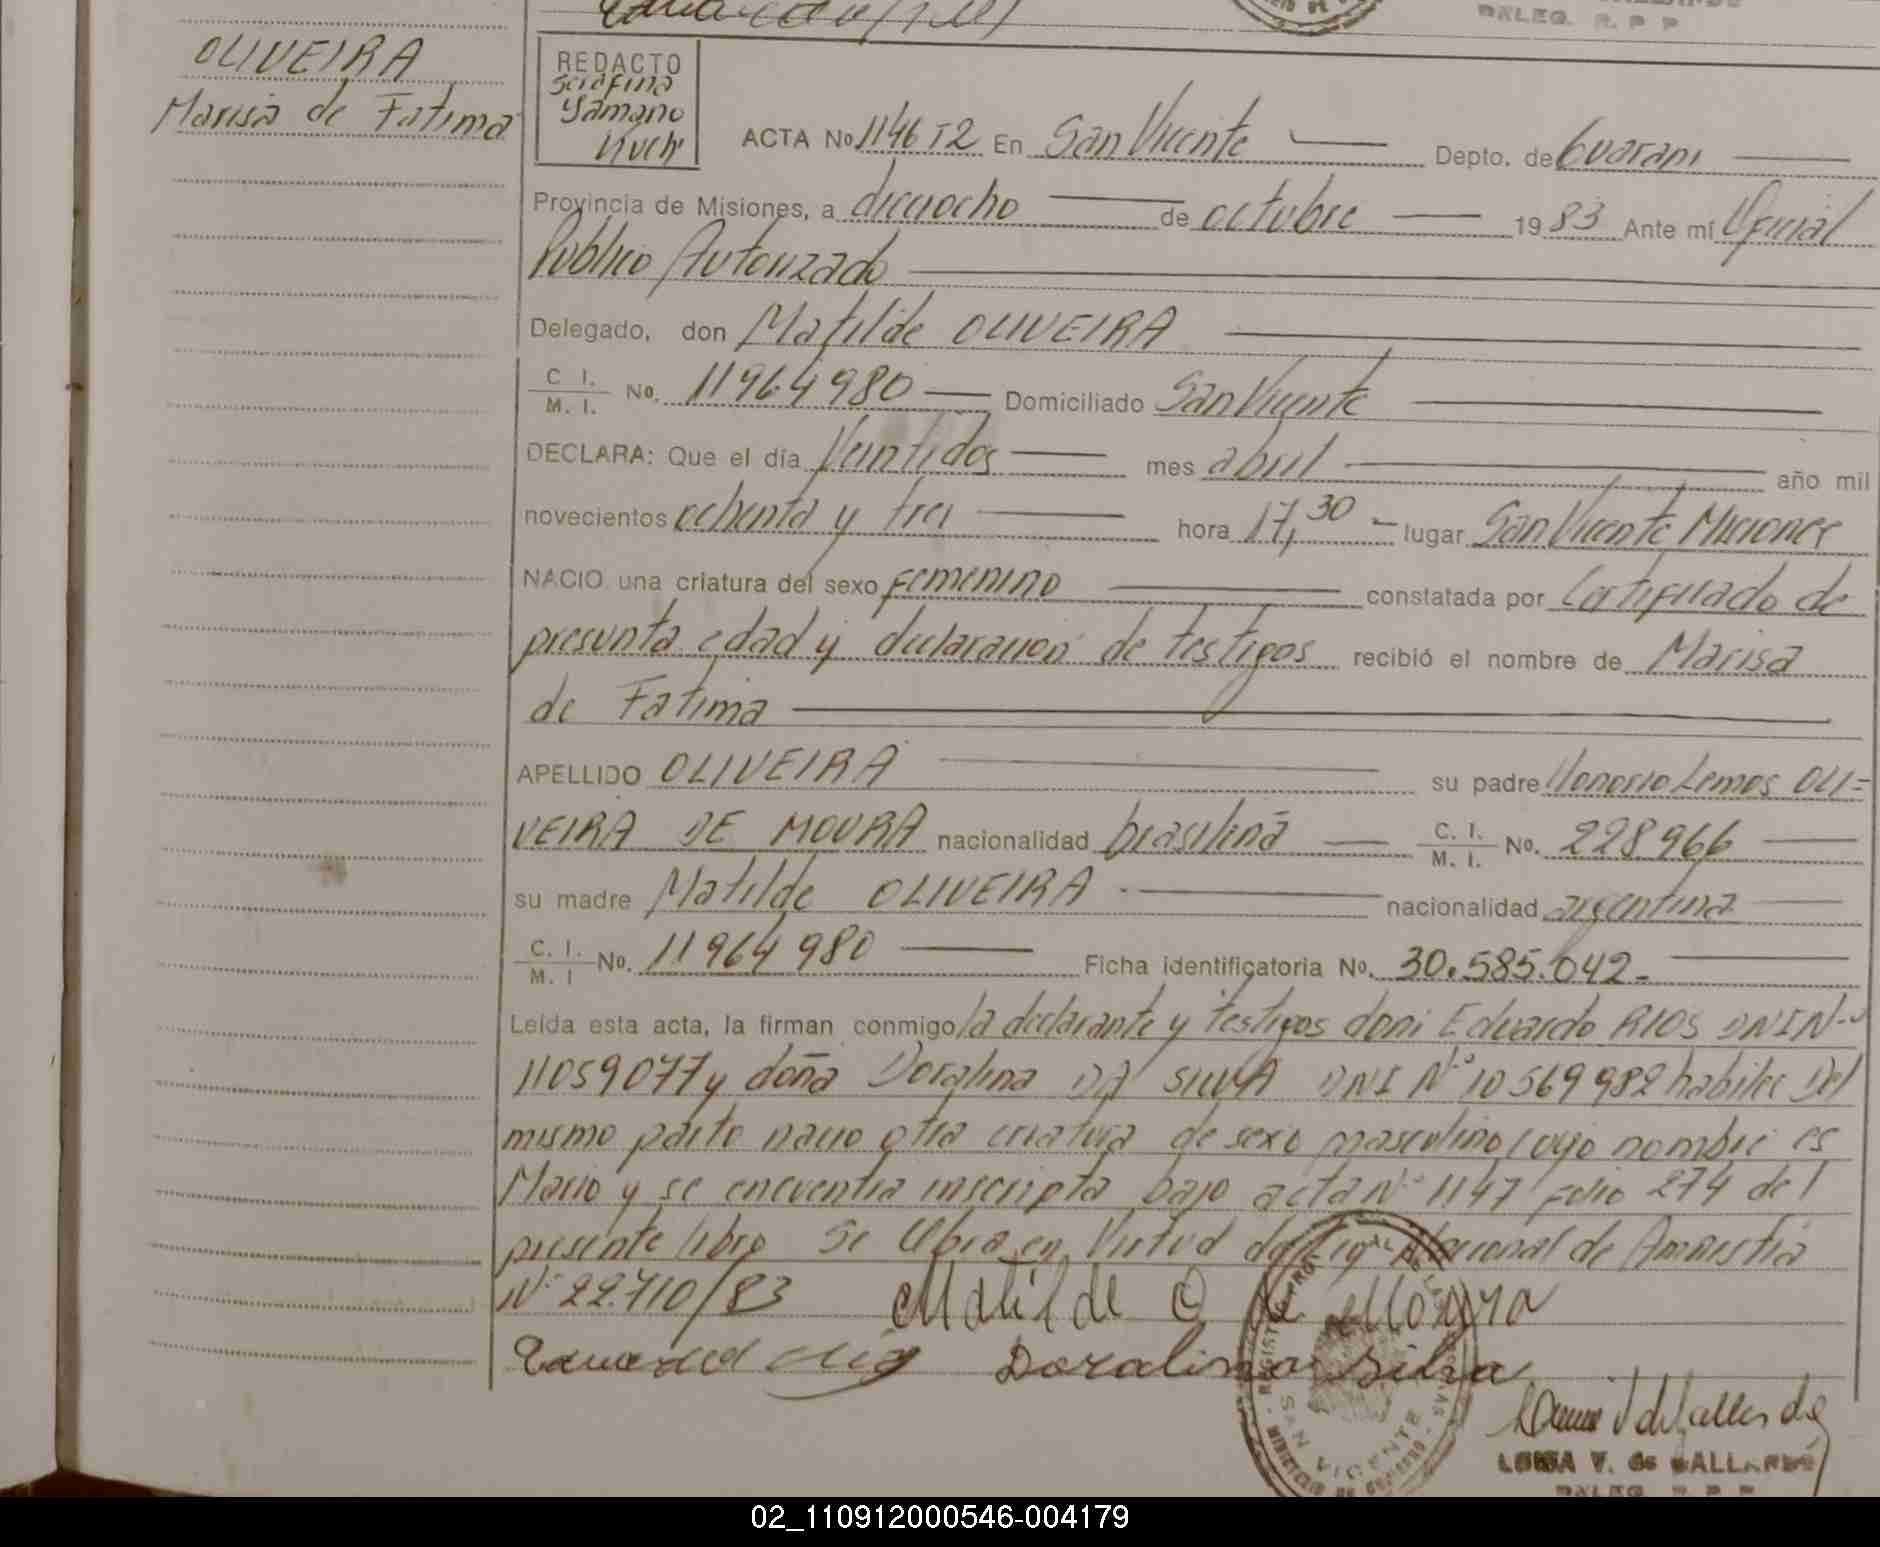 DALEG. R. P P
OLIVEIRA
Marisa de Fatima
REDACTO
Serafina
Yamano
Kuchi
ACTA No 1146 T2 En San Vicente Depto. de Guarani
Provincia de Misiones, a dieciocho de octubre 1983 Ante mí Oficial
Publico Autorizado
Delegado, don Matilde OLIVEIRA
C I. / M. I. No. 11964980 Domiciliado San Vicente
DECLARA: Que el día Veintidos mes abril año mil
novecientos ochenta y tres hora 17,30 lugar San Vicente Misiones
NACIO una criatura del sexo Femenino constatada por Certificado de
presunta edad y declaracion de testigos recibió el nombre de Marisa
de Fatima
APELLIDO OLIVEIRA su padre Honorio Lemos OLI=
VEIRA DE MOURA nacionalidad brasileña C. I. / M. I. No. 228966
su madre Matilde OLIVEIRA nacionalidad argentina
C. I. / M. I No. 11964980 Ficha identificatoria No. 30.585.042.-
Leída esta acta, la firman conmigo la declarante y testigos don: Eduardo RIOS DNI Nº
11059077 y doña Doralina DA SILVA DNI Nº 10569982 habiles Del
mismo parto nacio otra criatura de sexo masculino cuyo nombre es
Mario y se encuentra inscripta bajo acta Nº 1147 folio 274 del
presente libro Se Labra en Virtud de Ley Nacional de Amnistia
Nº 22.710/83 Matilde O de Moura
Doralina Silva
SAN VICENTE
LUISA V. de GALLARDE
DALEG R. P P
02_110912000546-004179